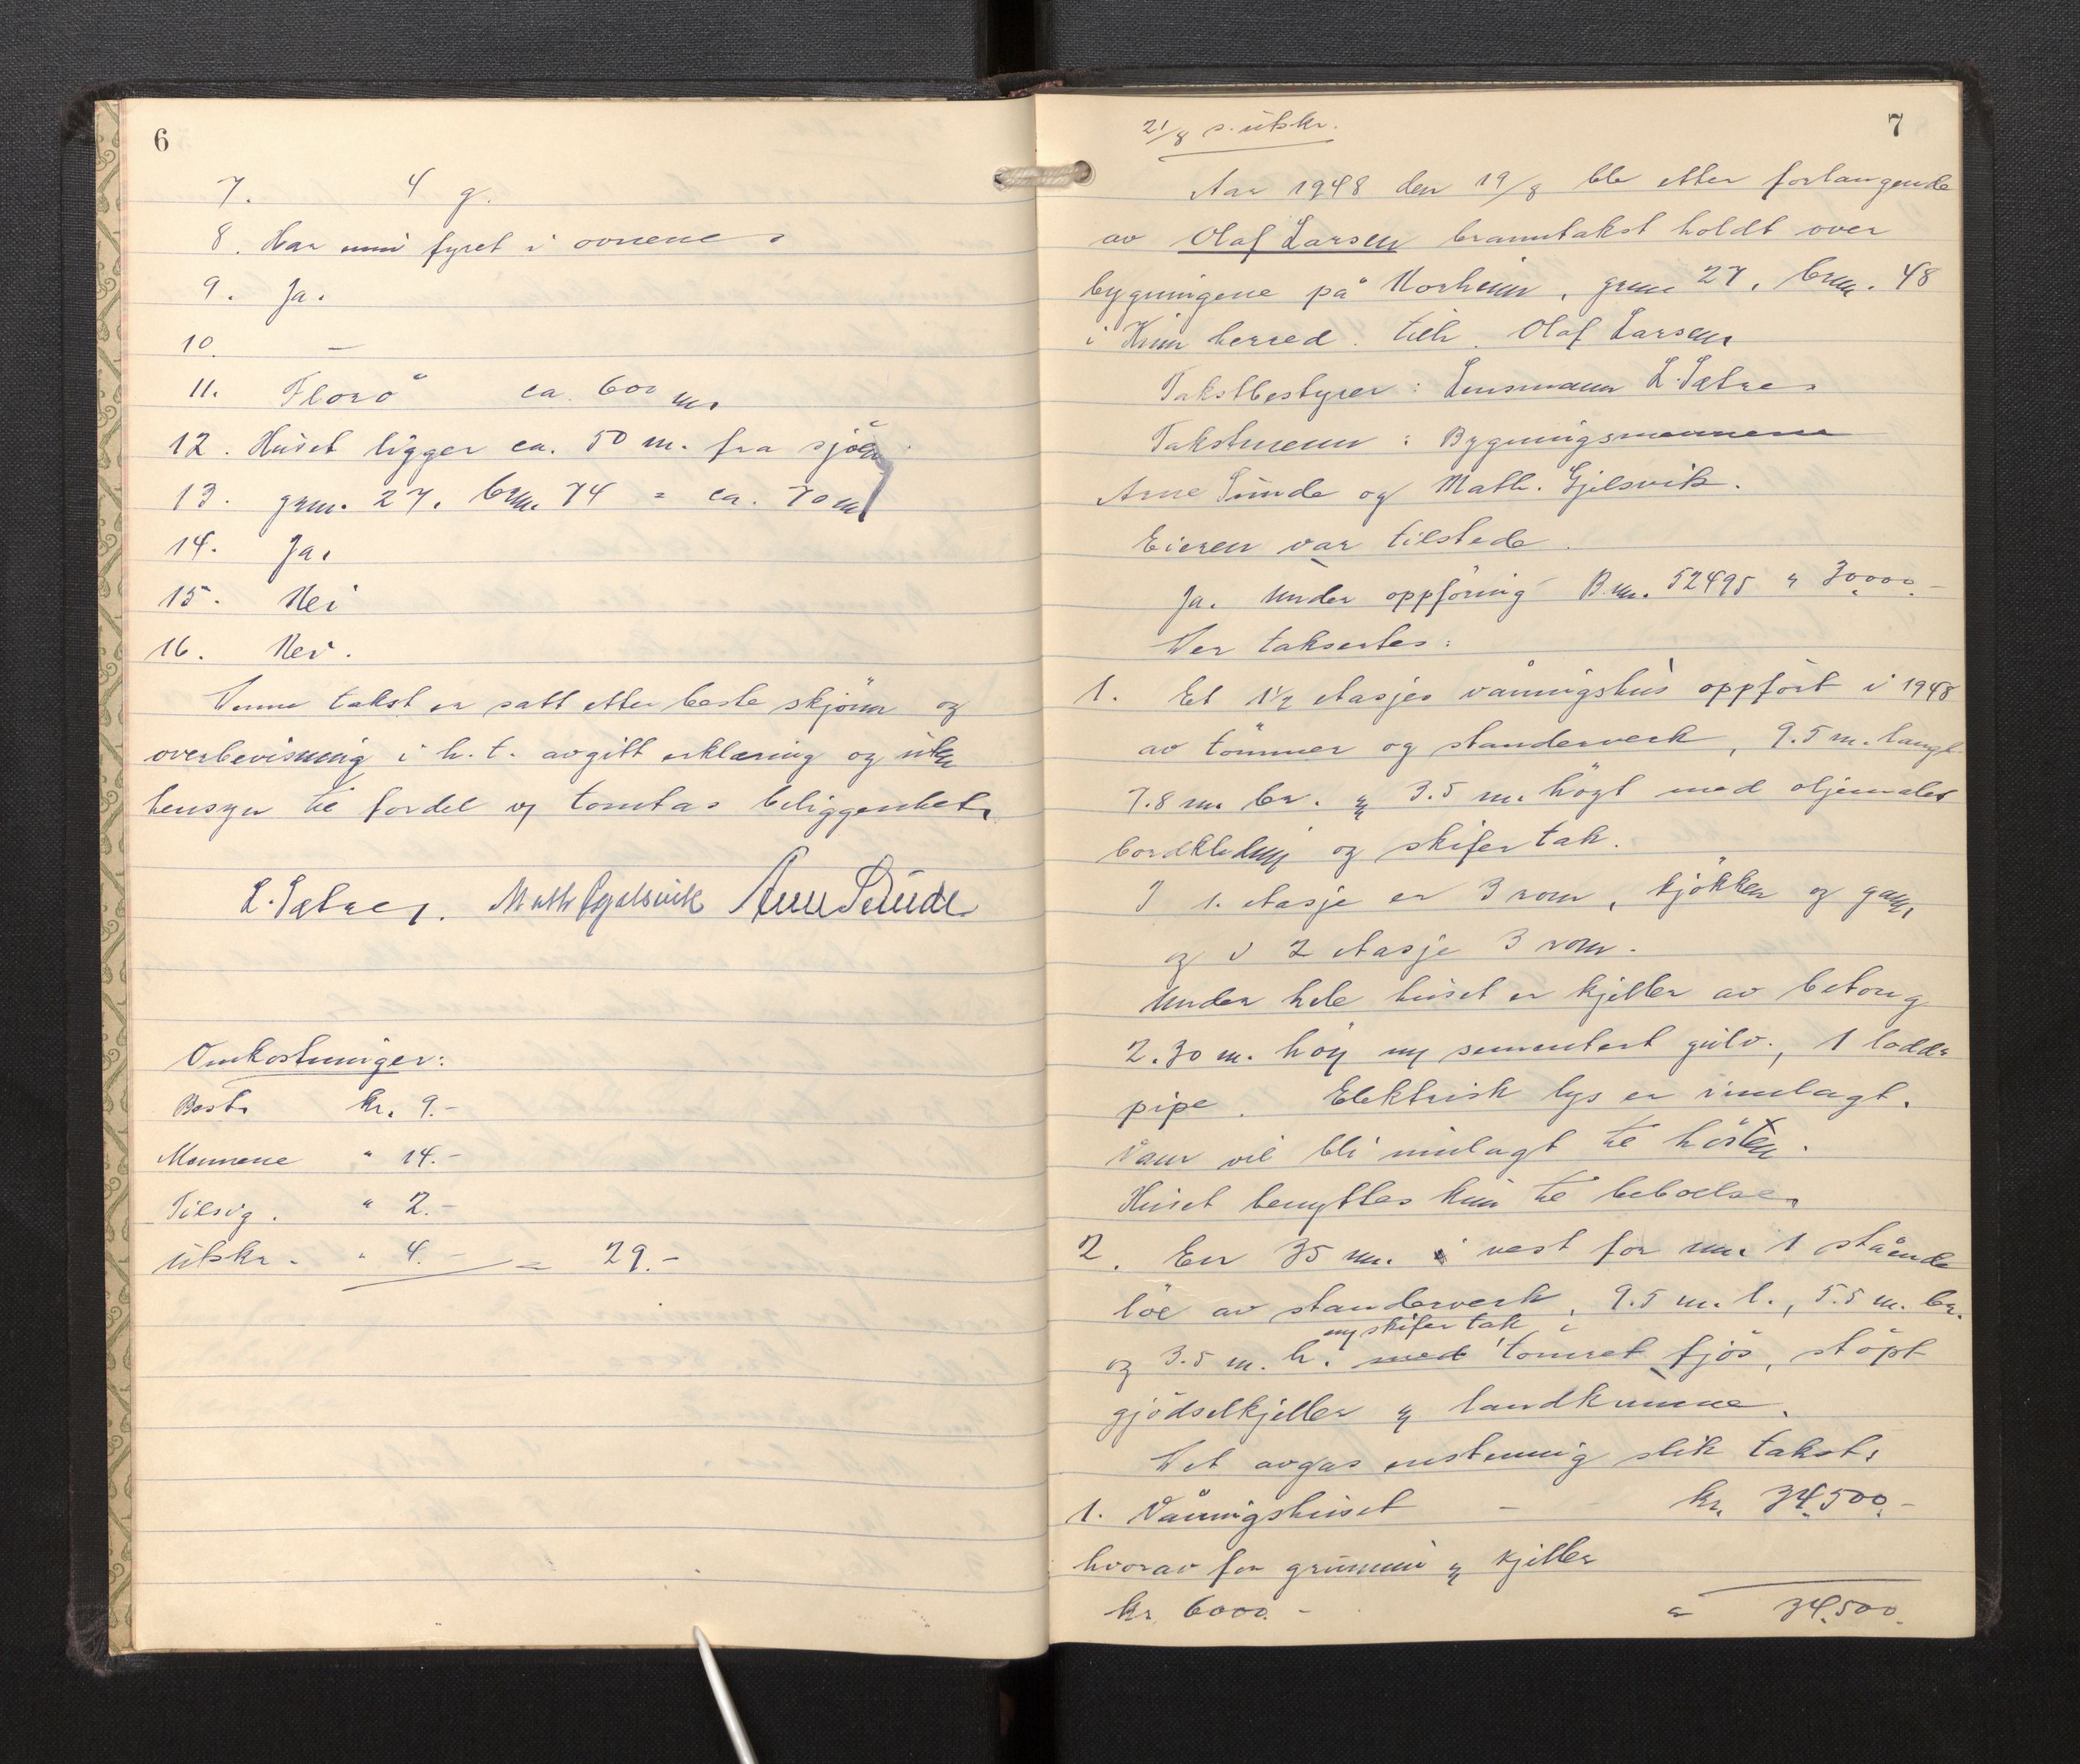 6
7. 4 g.
8. Har fyret i ovnene.
9. Ja.
10. —
11. Florö ca. 600 m.
12. Huset ligger ca. 50 m. fra sjöen
13. grn. 27. brn. 74 = ca. 70 m
14. Ja.
15. Nei
16. Nei.
Denne takst er satt etter beste skjönn og
overbevisning i h. t. avgitt erklæring og uten
hensyn til fordel og tomtas beliggenhet.
L. Sætre. Math Gjelsvik Arne Sunde
Omkostninger:
Best. kr. 9.-
Mennene " 14.-
Tilsig. " 2.-
Utskr. " 4.- = 29.-
7
21/8 s. utskr.
Aar 1948 den 19/8 ble etter forlangende
av Olaf Larsen branntakst holdt over
bygningene på Norheim, grn. 27, brn. 48
i Kinn herred. tilh. Olaf Larsen
Takstbestyrer: Lensmann L. Sætre
Takstmenn: Bygningsmennene
Arne Sunde og Math. Gjelsvik.
Eieren var tilstede.
Ja. Under oppföring B.nr. 52495 " 30000.-
Der takseres:
1. Et 1½ etasjes våningshus oppfört i 1948
av tömmer og standerverk, 9.5 m. langt
7.8 m. br. og 3.5 m. högt med oljemalet
bordkledning og skifer tak.
I 1. etasje er 3 rom, kjökken og gang,
og i 2 etasje 3 rom.
Under hele huset er kjeller av betong
2.30 m. höy m sementert gulv., 1 lodd.
pipe. Elektrisk lys er innlagt.
Vann vil bli innlagt til hösten.
Huset benyttes kun til beboelse.
2. En 35 m. i vest for nr. 1 stående
löe av standerverk, 9.5 m. l., 5.5 m. br.
m skifer tak
og 3.5 m. h. med tömret fjös, stöpt
gjödselkjeller og landkumme.
Det avgas enstemmig slik takst:
1. Våningshuset - kr. 34.500.-
hvorav for grunnmur og kjeller
kr. 6000.- = 34.500.